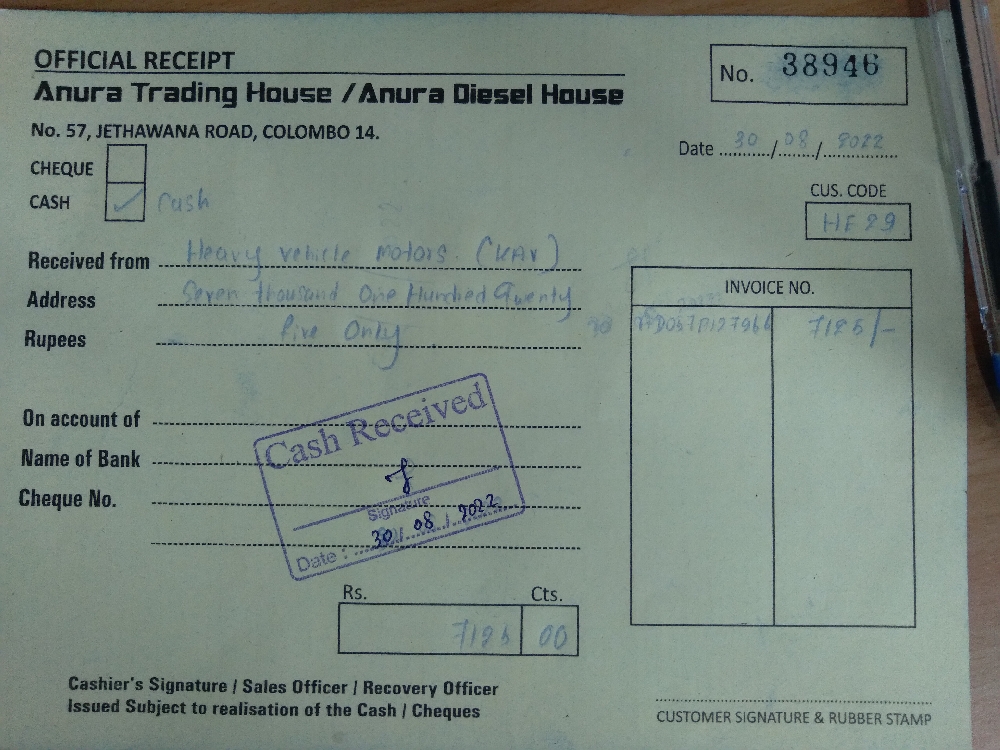 OFFICIAL RECEIPT
Anura Trading House / Anura Diesel House
No. 57, JETHAWANA ROAD, COLOMBO 14.
No. 38946
Date 30/08/2022
CHEQUE
CASH ✓ Cash
CUS. CODE
HF 29
Received from Heavy vehicle motors (KAV)
Address Seven thousand One Hundred Twenty
Rupees Five Only
INVOICE NO.
7125/-
On account of
Name of Bank
Cheque No.
Cash Received
Signature
Date : 30/08/2022
Rs. Cts.
7125 00
Cashier's Signature / Sales Officer / Recovery Officer
Issued Subject to realisation of the Cash / Cheques
CUSTOMER SIGNATURE & RUBBER STAMP